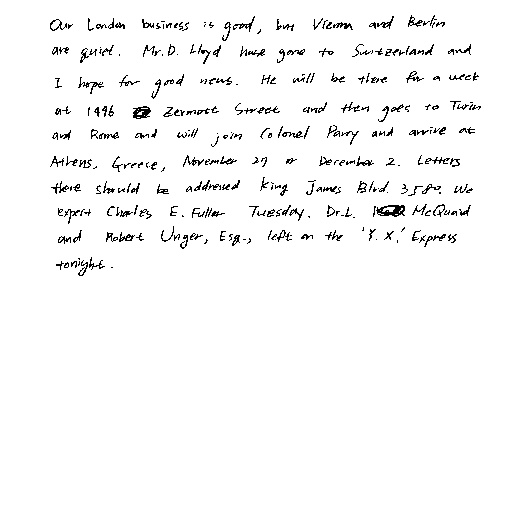 Our London business is good, but Vienna and Berlin
are quiet. Mr. D. Lloyd have gone to Switzerland and
I hope for good news. He will be there for a week
at 1496 Zermott Street and then goes to Turin
and Rome and will join Colonel Parry and arrive at
Athens, Greece, November 27 or December 2. Letters
there should be addressed King James Blvd. 3580. We
expect Charles E. Fuller Tuesday. Dr. L. McQuaid
and Robert Unger, Esq., left on the 'Y. X.' Express
tonight.